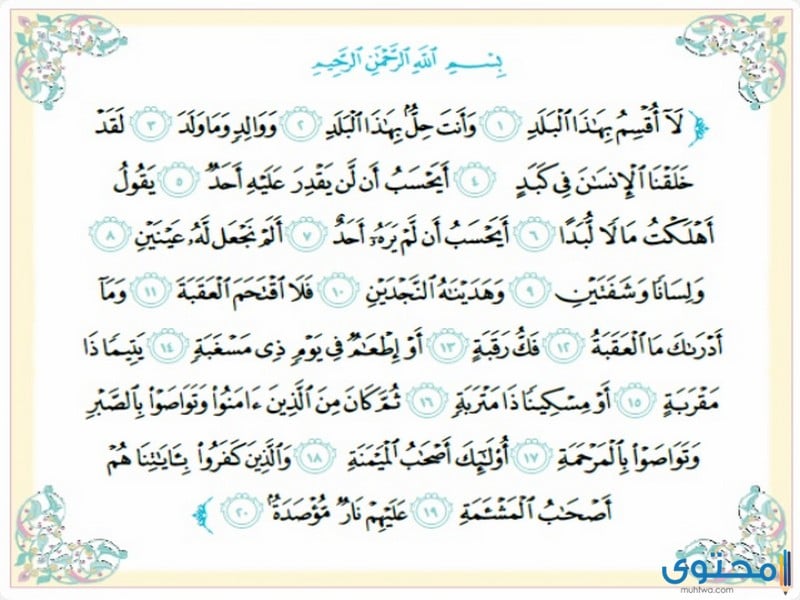 بِسْمِ اللَّهِ الرَّحْمَٰنِ الرَّحِيمِ
لَآ أُقْسِمُ بِهَٰذَا الْبَلَدِ ١ وَأَنتَ حِلٌّۢ بِهَٰذَا الْبَلَدِ ٢ وَوَالِدٍ وَمَا وَلَدَ ٣ لَقَدْ
خَلَقْنَا الْإِنسَٰنَ فِي كَبَدٍ ٤ أَيَحْسَبُ أَن لَّن يَقْدِرَ عَلَيْهِ أَحَدٌ ٥ يَقُولُ
أَهْلَكْتُ مَالًا لُّبَدًا ٦ أَيَحْسَبُ أَن لَّمْ يَرَهُۥ أَحَدٌ ٧ أَلَمْ نَجْعَل لَّهُۥ عَيْنَيْنِ ٨
وَلِسَانًا وَشَفَتَيْنِ ٩ وَهَدَيْنَٰهُ النَّجْدَيْنِ ١٠ فَلَا اقْتَحَمَ الْعَقَبَةَ ١١ وَمَآ
أَدْرَىٰكَ مَا الْعَقَبَةُ ١٢ فَكُّ رَقَبَةٍ ١٣ أَوْ إِطْعَٰمٌ فِي يَوْمٍ ذِي مَسْغَبَةٍ ١٤ يَتِيمًا ذَا
مَقْرَبَةٍ ١٥ أَوْ مِسْكِينًا ذَا مَتْرَبَةٍ ١٦ ثُمَّ كَانَ مِنَ الَّذِينَ ءَامَنُوا۟ وَتَوَاصَوْا۟ بِالصَّبْرِ
وَتَوَاصَوْا۟ بِالْمَرْحَمَةِ ١٧ أُو۟لَٰٓئِكَ أَصْحَٰبُ الْمَيْمَنَةِ ١٨ وَالَّذِينَ كَفَرُوا۟ بِـَٔايَٰتِنَا هُمْ
أَصْحَٰبُ الْمَشْـَٔمَةِ ١٩ عَلَيْهِمْ نَارٌ مُّؤْصَدَةٌۢ ٢٠
محتوى
muhtwa.com